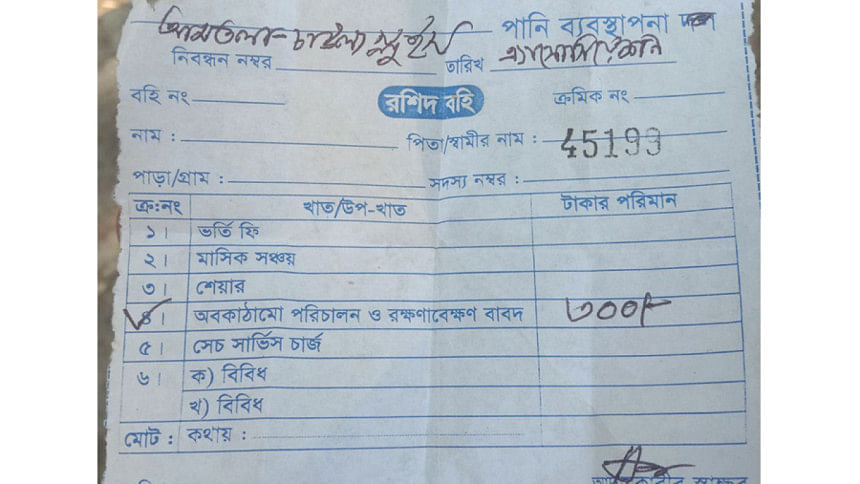 আমতলা-চাউলা সুইস পানি ব্যবস্থাপনা দল
নিবন্ধন নম্বর তারিখ
বহি নং রশিদ বহি ক্রমিক নং
নাম : পিতা/স্বামীর নাম : 45199
পাড়া/গ্রাম : সদস্য নম্বর :
ক্র:নং খাত/উপ-খাত টাকার পরিমান
১। ভর্তি ফি
২। মাসিক সঞ্চয়
৩। শেয়ার
৪। অবকাঠামো পরিচালন ও রক্ষণাবেক্ষণ বাবদ ৩০০/-
৫। সেচ সার্ভিস চার্জ
৬। ক) বিবিধ
খ) বিবিধ
মোট : কথায় :